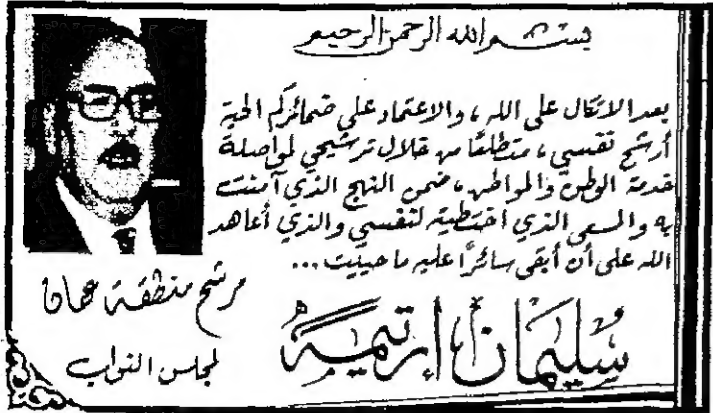 بسم الله الرحمن الرحيم
بعد الاتكال على الله ، والاعتماد على ضمائركم الحية
أرشح نفسي ، متطلعًا من خلال ترشيحي لمواصلة
خدمة الوطن والمواطن ، ضمن النهج الذي آمنت
به والمسعى الذي اختطيته لنفسي والذي أعاهد
الله على أن أبقى سائرًا عليه ما حييت ...
سليمان ارتيمة
مرشح منطقة عمان
لمجلس النواب